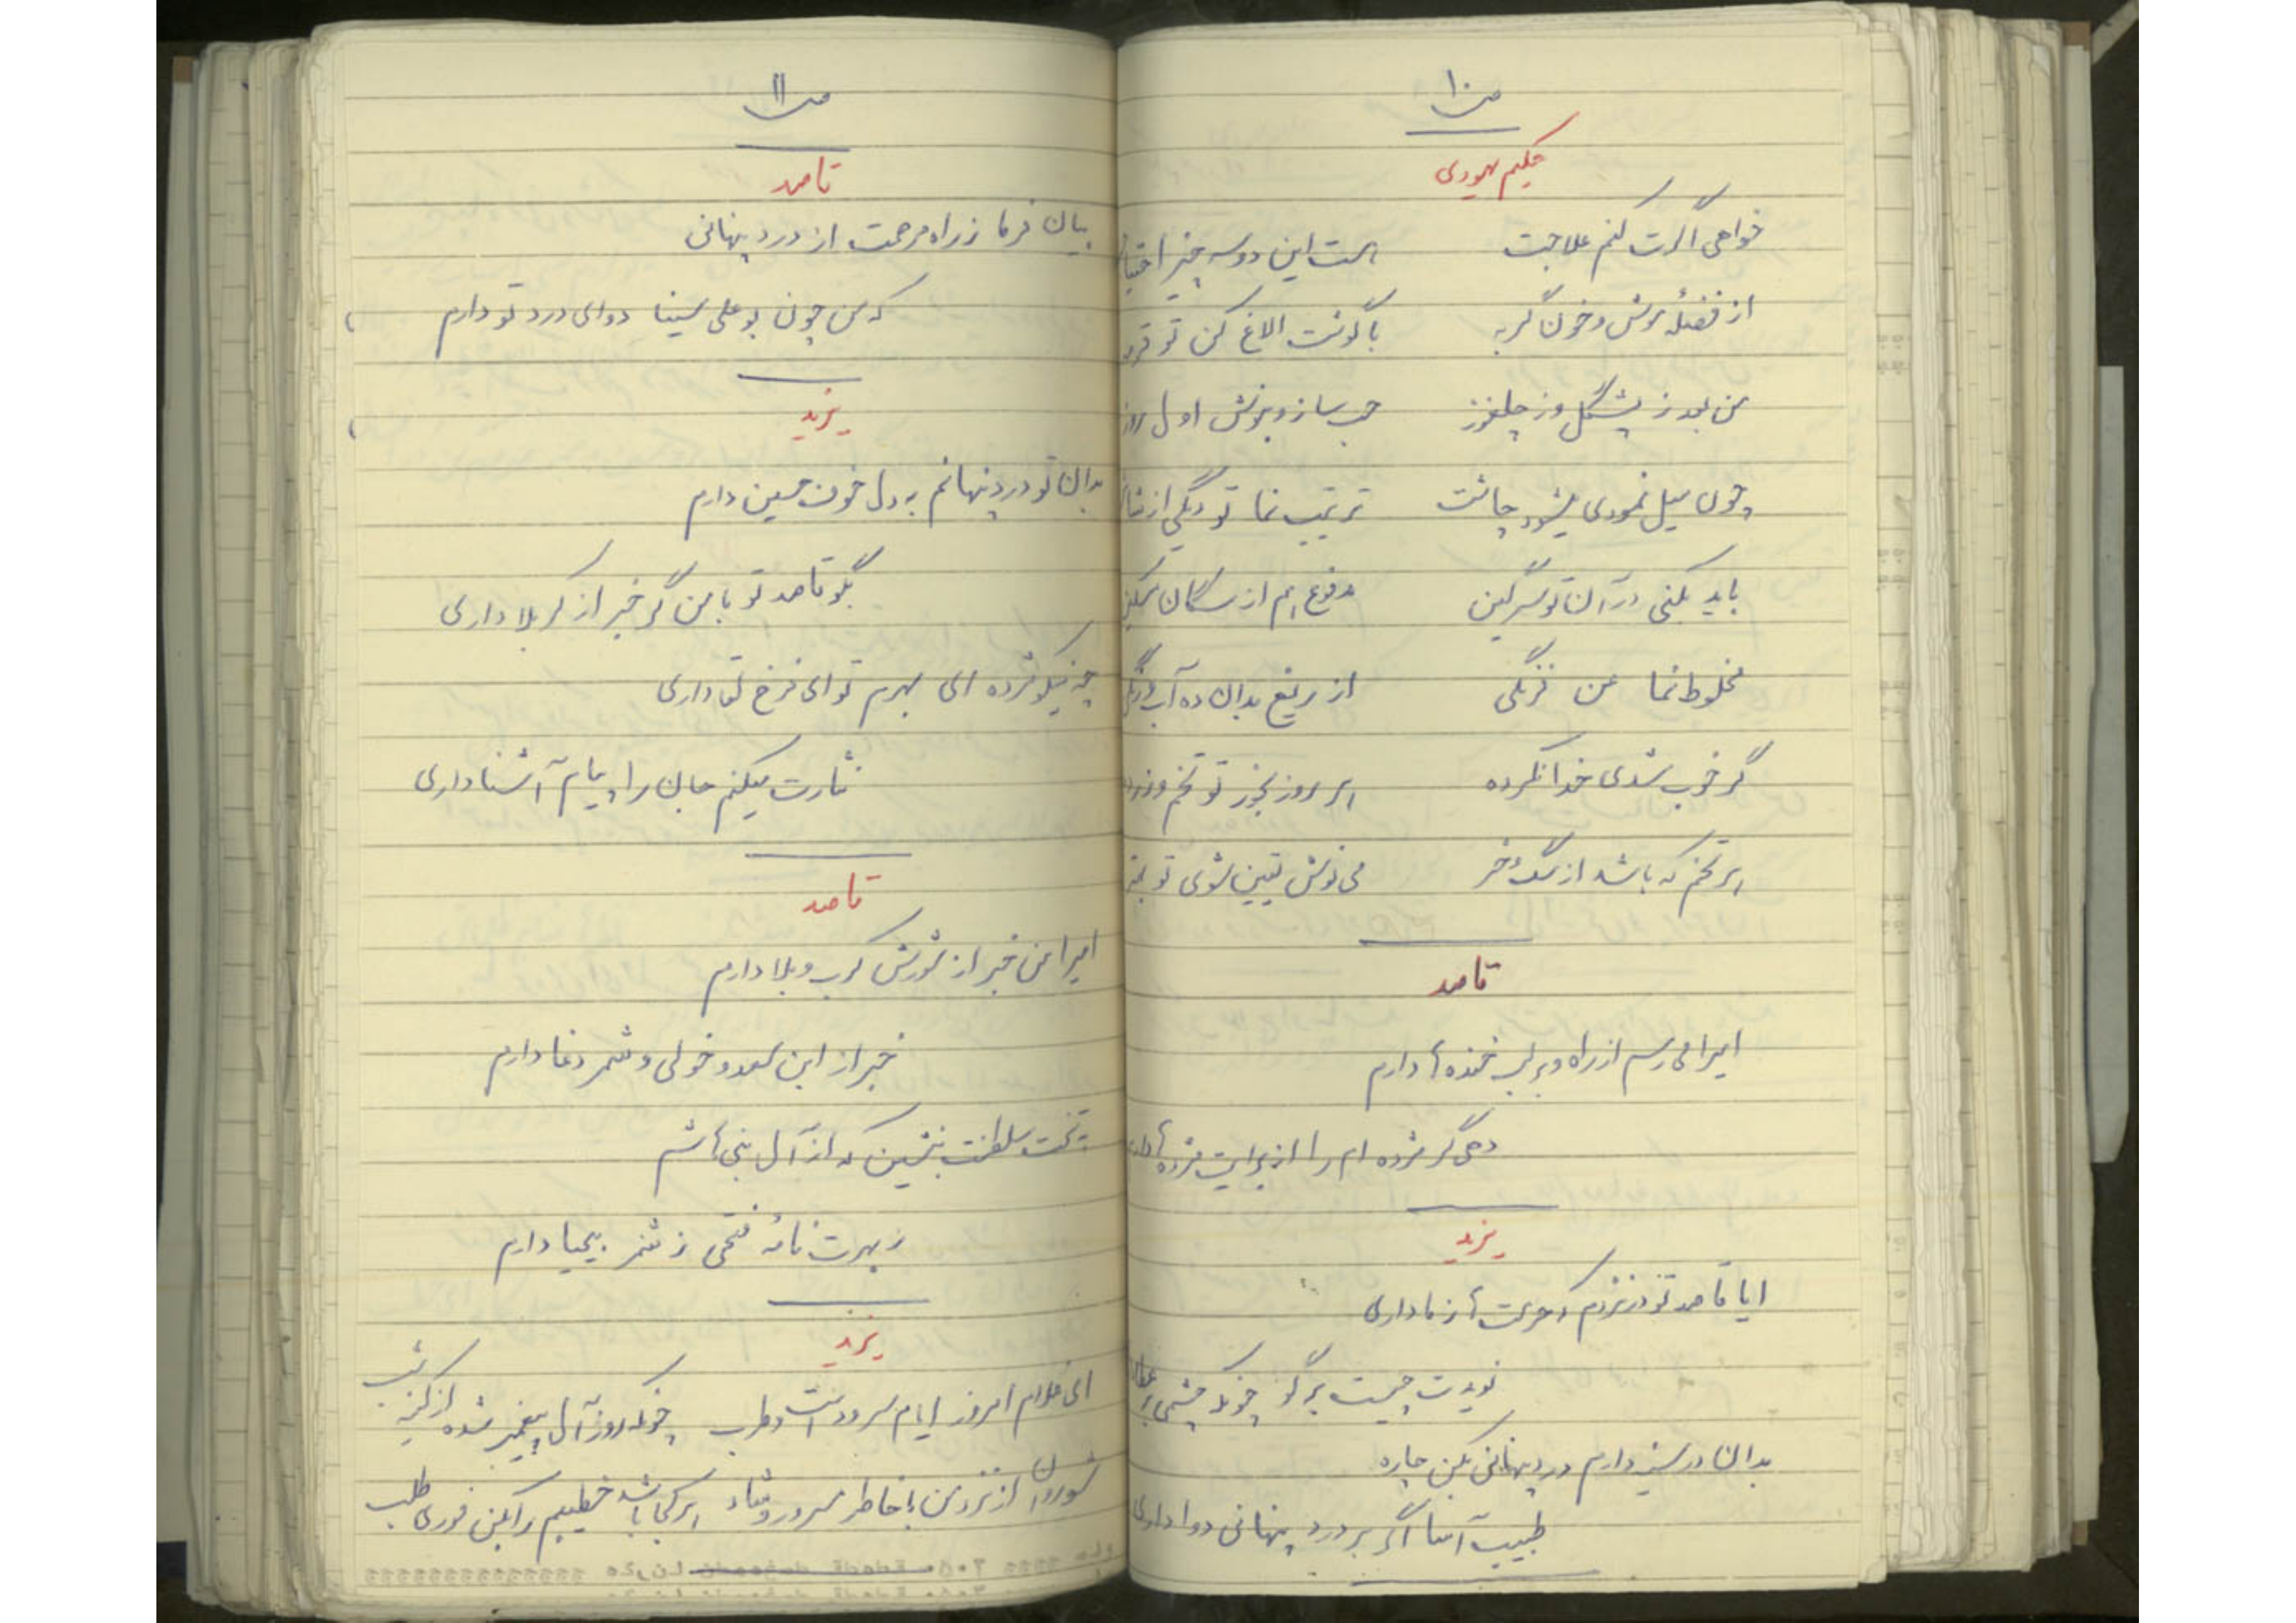 ص ۱۰
حکیم یهودی
خواهی اگرت کنم علاجت هست این دو سه چیز
از فضلهٔ موش و خون گربه با گوشت الاغ کن تو
من بعد ز پشگل وز چلغوز حب ساز و بنوش اول روز
چون میل نمودی بشود چاشت ترتیب نما تو دیگی از
باید بکنی در آن تو سرگین مدفوع هم از سگان
مخلوط نما من فرنگی از بدان ده آب
گر خوب شدی خدا نکرده هر روز بخور تو تخم و زرده
هر تخم که باشد از سگ و خر می نوش یقین شوی تو بهتر
قاصد
امیرا می رسم از راه و بر لب خنده ها دارم
دهی گر مژده ام را از برایت مژده ها دارم
یزید
ایا قاصد تو در نزدم که عرت ها ز ما داری
نویدت چیست برگو چونکه چشمی بر عطا
بدان در سینه دارم درد پنهانی بکن چاره
طبیب آسا اگر بر درد پنهانی دوا داری
ص ۱۱
قاصد
بیان فرما ز راه مرحمت از درد پنهانی
که من چون بوعلی سینا دوای درد تو دارم
یزید
بدان تو درد پنهانم به دل خون حسین دارم
بگو قاصد تو با من گر خبر از کربلا داری
چه نیکو مژده ای بهرم تو ای فرخ لقا داری
نثارت میکنم جان را پیام آشنا داری
قاصد
امیرا من خبر از شورش کرب و بلا دارم
خبر از ابن سعد و خولی و شمر دغا دارم
بتخت سلطنت بنشین که از آل بنی هاشم
ز بهرت نامه فتحی ز شمر بیحیا دارم
یزید
ای غلام امروز ایام سرود است و طرب چونکه روز آل پیغمبر شده از کینه شب
شو روان از نزد من با خاطر مسرور و شاد هر کجا باشد خطیبم را بکن فوری طلب